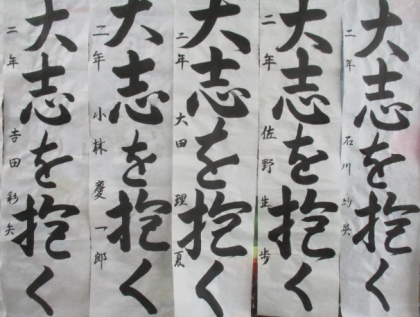 大志を抱く
二年 石川紗英
大志を抱く
二年 佐野生歩
大志を抱く
二年 太田理夏
大志を抱く
二年 小林慶一郎
大志を抱く
二年 吉田彩矢